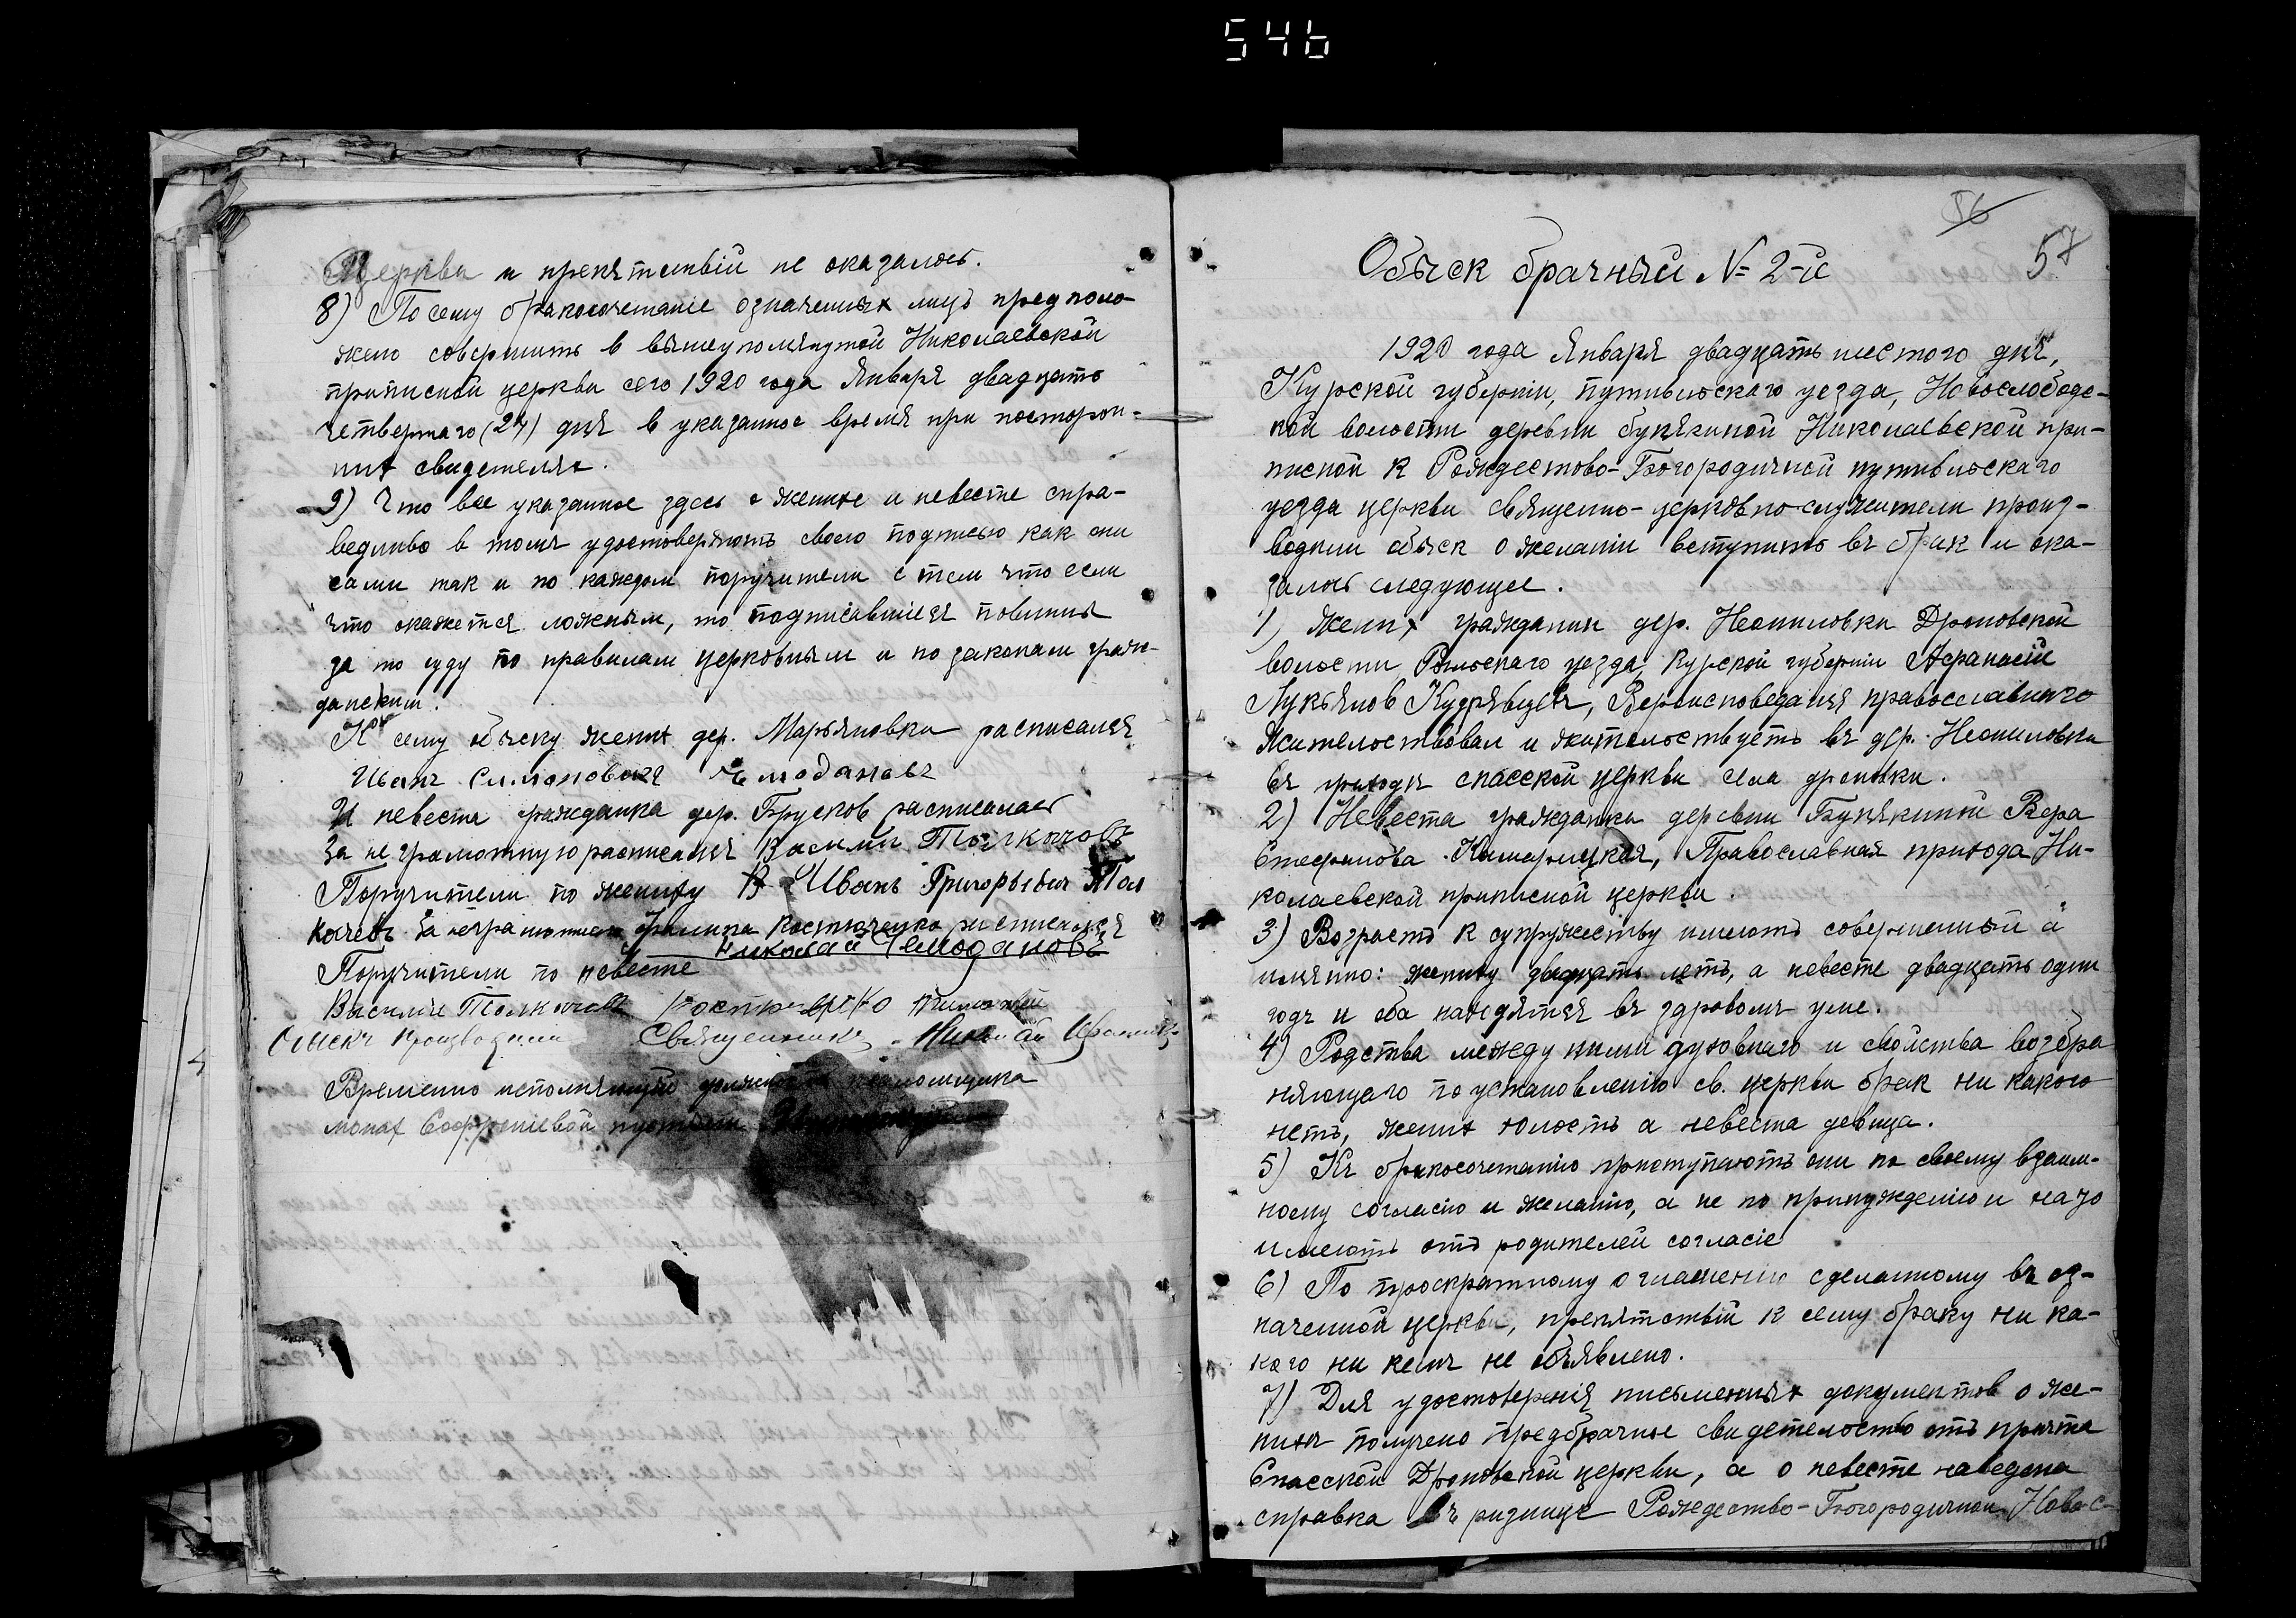 546
Церкви и препятствій не оказалось.
8) Посему бракосочетаніе означенных лицъ предполо-
жено совершить в вышеупомянутой Николаевской
приписной церкви сего 1920 года Января двадцать
четвертаго (24) дня в указанное время при посторон-
них свидетелях.
9) Что все указанное здесь о женихе и невесте спра-
ведливо в томъ удостоверяютъ своею подписью как они
сами так и по каждом поручители с тем что если
что окажется ложным, то подписавшіеся повинны
за то суду по правилам церковным и по законам граж-
данским.
Къ сему обыску жених дер. Марьяновки расписался
Иванъ Чемодановъ
И невеста гражданка дер. Брусков расписалась
За не грамотную расписался Васили Толкачовъ
Поручители по жениху Иванъ Григорьевич Тол
качевъ За неграмотнаго Филипа Костюченко расписался
Николай Чемодановъ
Поручители по невесте
Василие Толкачов Костюченко
Обыскъ производили Священникъ Николай
Временно исполняющій должность псаломщика
монах Софроніевой пустыни
56
57
Обыск брачный № 2-й
1920 года Января двадцать шестого дня,
Курской губерніи, путивльскаго уезда, Новослободс-
кой волости деревни бунякиной Николаевской при-
писной к Рождество-Богородичной путивльскаго
уезда церкви священно-церковно-служители произ-
водили обыск о желаніи вступить въ брак и ока-
залось следующее.
1) Жених гражданин дер. Неониловки Дроновской
волости, Рыльскаго уезда, Курской губерніи Афанасій
Лукьянов Кудрявцевъ, Вероисповеданія православнаго
Жительствовал и жительствуетъ въ дер. Неониловки
въ приходе спасской церкви села дроновки.
2) Невеста гражданка деревни Бунякиной Вера
Стефанова Камарицкая, Православная прихода Ни-
колаевской приписной церкви.
3) Возрастъ к супружеству имеютъ совершенный а
имянно: жениху двадцать летъ, а невесте двадцать один
годъ и оба находятся въ здравомъ уме.
4) Родства между ними духовнаго и свойства возбра
няющаго по установленію св. церкви брак ни какого
нетъ, жених юность а невеста девица.
5) Къ бракосочетанію приступаютъ они по своему взаим-
ному согласію и желанію, а не по принужденію и на то
имеютъ отъ родителей согласіе
6) По троекратному оглашенію сделанному въ оз-
наченной церкви, препятствій к сему браку ни ка-
кого ни кемъ не объявлено.
7) Для удостоверенія письменных документов о же-
нихе получено предбрачное свидетельство отъ причта
Спасской Дроновской церкви, а о невесте наведена
справка въ ризнице Рождество-Богородичной Новос-